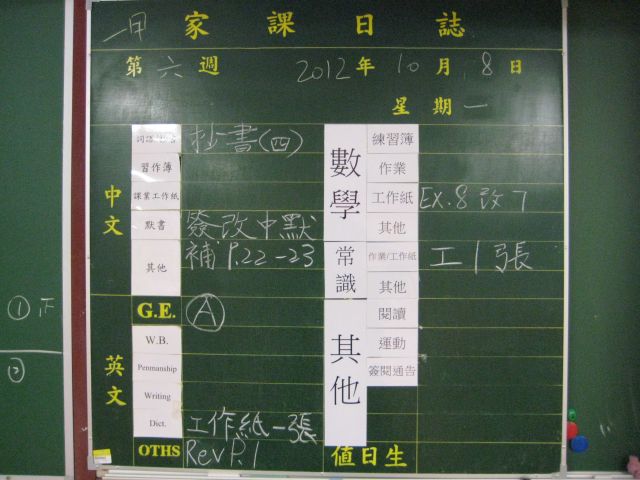 一甲 家課日誌
第六週 2012年10月8日
星期一
中文
抄書(四)
習作簿
課業工作紙
默書 簽改中默
其他 補P.22-23
英文
G.E. Ⓐ
W.B.
Penmanship
Writing
Dict. 工作紙一張
OTHS Rev P.1
數學
練習簿
作業
工作紙 EX.8 改7
其他
常識
作業/工作紙 工1張
其他
其他
閱讀
運動
簽閱通告
值日生
① 正
②